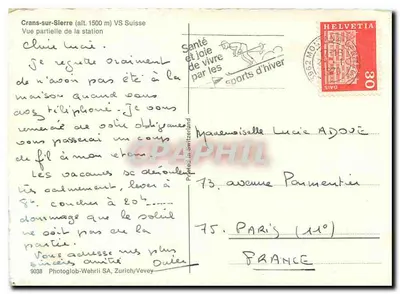 Crans-sur-Sierre (alt. 1500 m) VS Suisse
Vue partielle de la station
Chère Lucie.
Je regrette vraiment
de n'avoir pas été à la
maison quand vous
avez téléphoné. Je vous
remercie de votre obligeance
vous passerai un coup
de fil à mon retour.
Les vacances se déroulent
très calmement, lever à
8h. coucher à 20h....
dommage que le soleil
ne soit pas de la
partie.
Vous adresse mes plus
sincères amitiés
9038 Photoglob-Wehrli SA, Zurich/Vevey
Printed in Switzerland
Santé
et joie
de vivre
par les
sports d'hiver
3962 MO
HELVETIA
30
Mademoiselle Lucie ADOUE
73, avenue Parmentier
75. PARIS (11°)
FRANCE
CPAPHIL